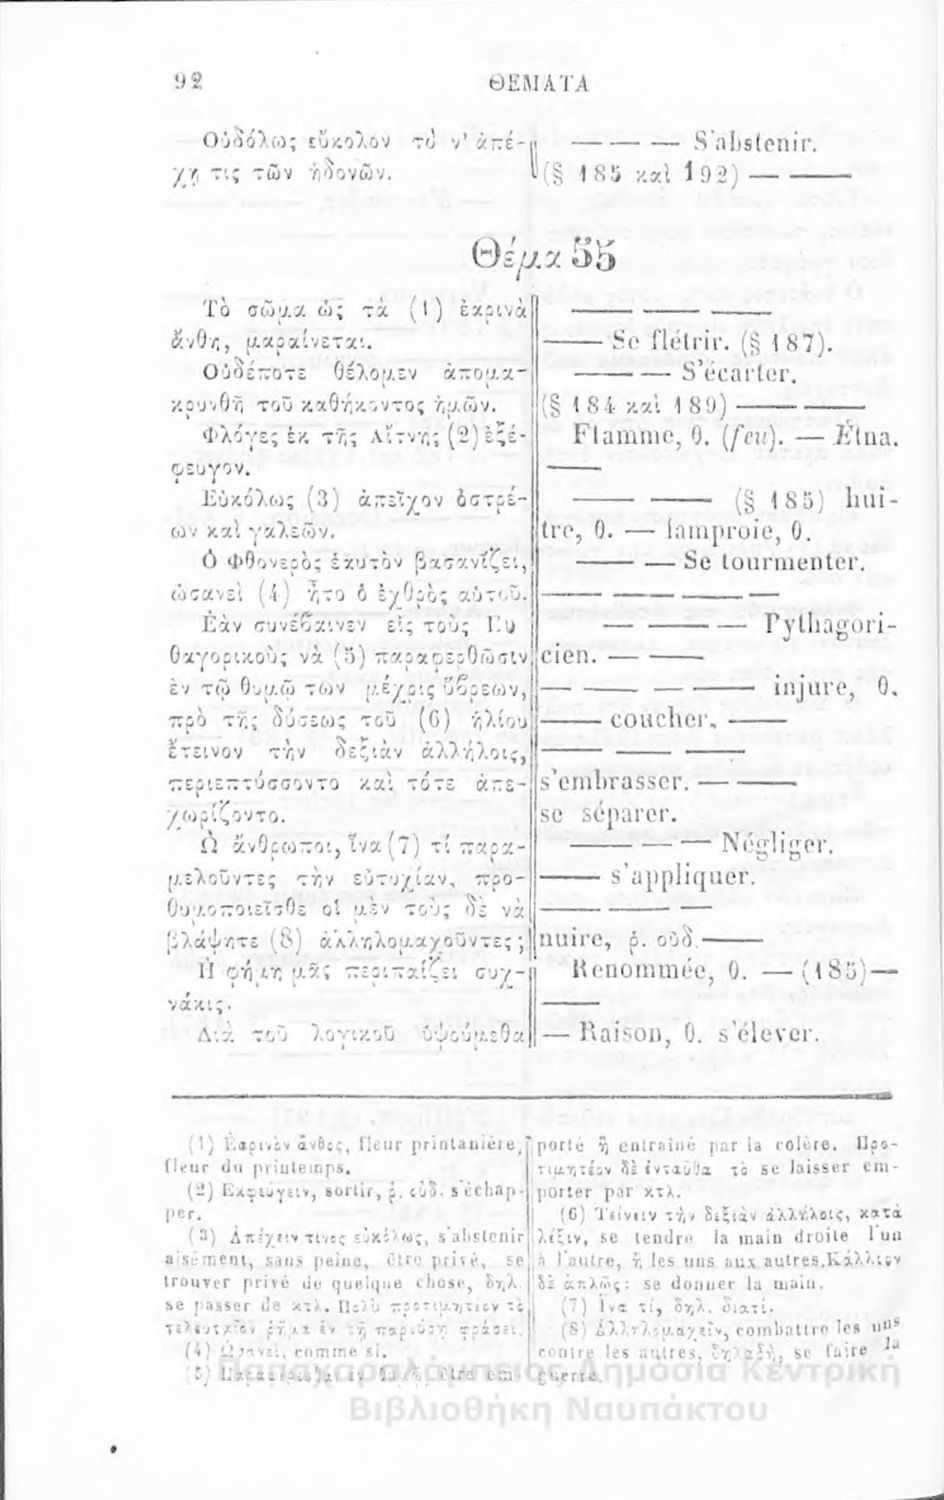 92
ΘΕΜΑΤΑ
Οὐδόλως εὔκολον τὸ ν' ἀπέ-
χῃ τις τῶν ἡδονῶν.
— — — — S'abstenir.
(§ 185 καὶ 192) — ——
Θέμα 55
Τὸ σῶμα ὡς τὰ (1) ἐαρινὰ
ἄνθη, μαραίνεται.
Οὐδέποτε θέλομεν ἀπομα-
κρυνθῆ τοῦ καθήκοντος ἡμῶν.
Φλόγες ἐκ τῆς Αἴτνης (2) ἐξέ-
φευγον.
Εὐκόλως (3) ἀπεῖχον ὀστρέ-
ων καὶ γαλεῶν.
Ὁ Φθονερὸς ἑαυτὸν βασανίζει,
ὡσανεὶ (4) ἦτο ὁ ἐχθρὸς αὐτοῦ.
Ἐὰν συνέβαινεν εἰς τοὺς Πυ
θαγορικοὺς νὰ (5) παραφερθῶσιν
ἐν τῷ θυμῷ των μέχρις ὕβρεων,
πρὸ τῆς δύσεως τοῦ (6) ἡλίου
ἔτεινον τὴν δεξιὰν ἀλλήλοις,
περιεπτύσσοντο καὶ τότε ἀπε-
χωρίζοντο.
Ὦ ἄνθρωποι, ἵνα (7) τί παρα-
μελοῦντες τὴν εὐτυχίαν, προ-
θυμοποιεῖσθε οἱ μὲν τοὺς δὲ νὰ
βλάψητε (8) ἀλληλομαχοῦντες;
Ἡ φήμη μᾶς περιπαίζει συχ-
νάκις.
Διὰ τοῦ λογικοῦ ὑψούμεθα
—— —— ——
—— Se flétrir. (§ 187).
—— — S'écarter.
(§ 184 καὶ 189) —— ——
Flamme, θ. (feu). — Etna.
——
—— —— (§ 185) huî-
tre, θ. — lamproie, θ.
—— — Se tourmenter.
—— —— —— —
—— —— — Pythagori-
cien. — ——
— —— — —— injure, θ.
—— coucher. ——
—— —— ——
s'embrasser. — ——
se séparer.
—— — — Négliger.
—— s'appliquer.
—— —— —
nuire, ῥ. οὐδ. ——
Renommée, θ. — (185) —
——
— Raison, θ. s'élever.
(1) Ἐαρινὸν ἄνθος, fleur printanière,
fleur du printemps.
(2) Ἐκφεύγειν, sortir, ῥ. οὐδ. s'échap-
per.
(3) Ἀπέχειν τινος εὐκόλως, s'abstenir
aisément, sans peine, être privé, se
trouver privé de quelque chose, δηλ.
se passer de κτλ. Πολὺ προτιμητέον τὸ
τελευταῖον ῥῆμα ἐν τῇ παρούσῃ φράσει.
(4) Ὡσανεί, comme si.
être em-
porté ἢ entraîné par la colère. Προ-
τιμητέον δὲ ἐνταῦθα τὸ se laisser em-
porter par κτλ.
(6) Τείνειν τὴν δεξιὰν ἀλλήλοις, κατὰ
λέξιν, se tendre la main droite l'un
à l'autre, ἢ les uns aux autres. Κάλλιον
δὲ ἁπλῶς: se donner la main.
(7) Ἵνα τί, δηλ. διατί.
(8) Ἀλληλομαχεῖν, combattre les uns
contre les autres, δηλαδή, se faire la
guerre.
Παπαχαραλάμπειος Δημόσια Κεντρική
Βιβλιοθήκη Ναυπάκτου